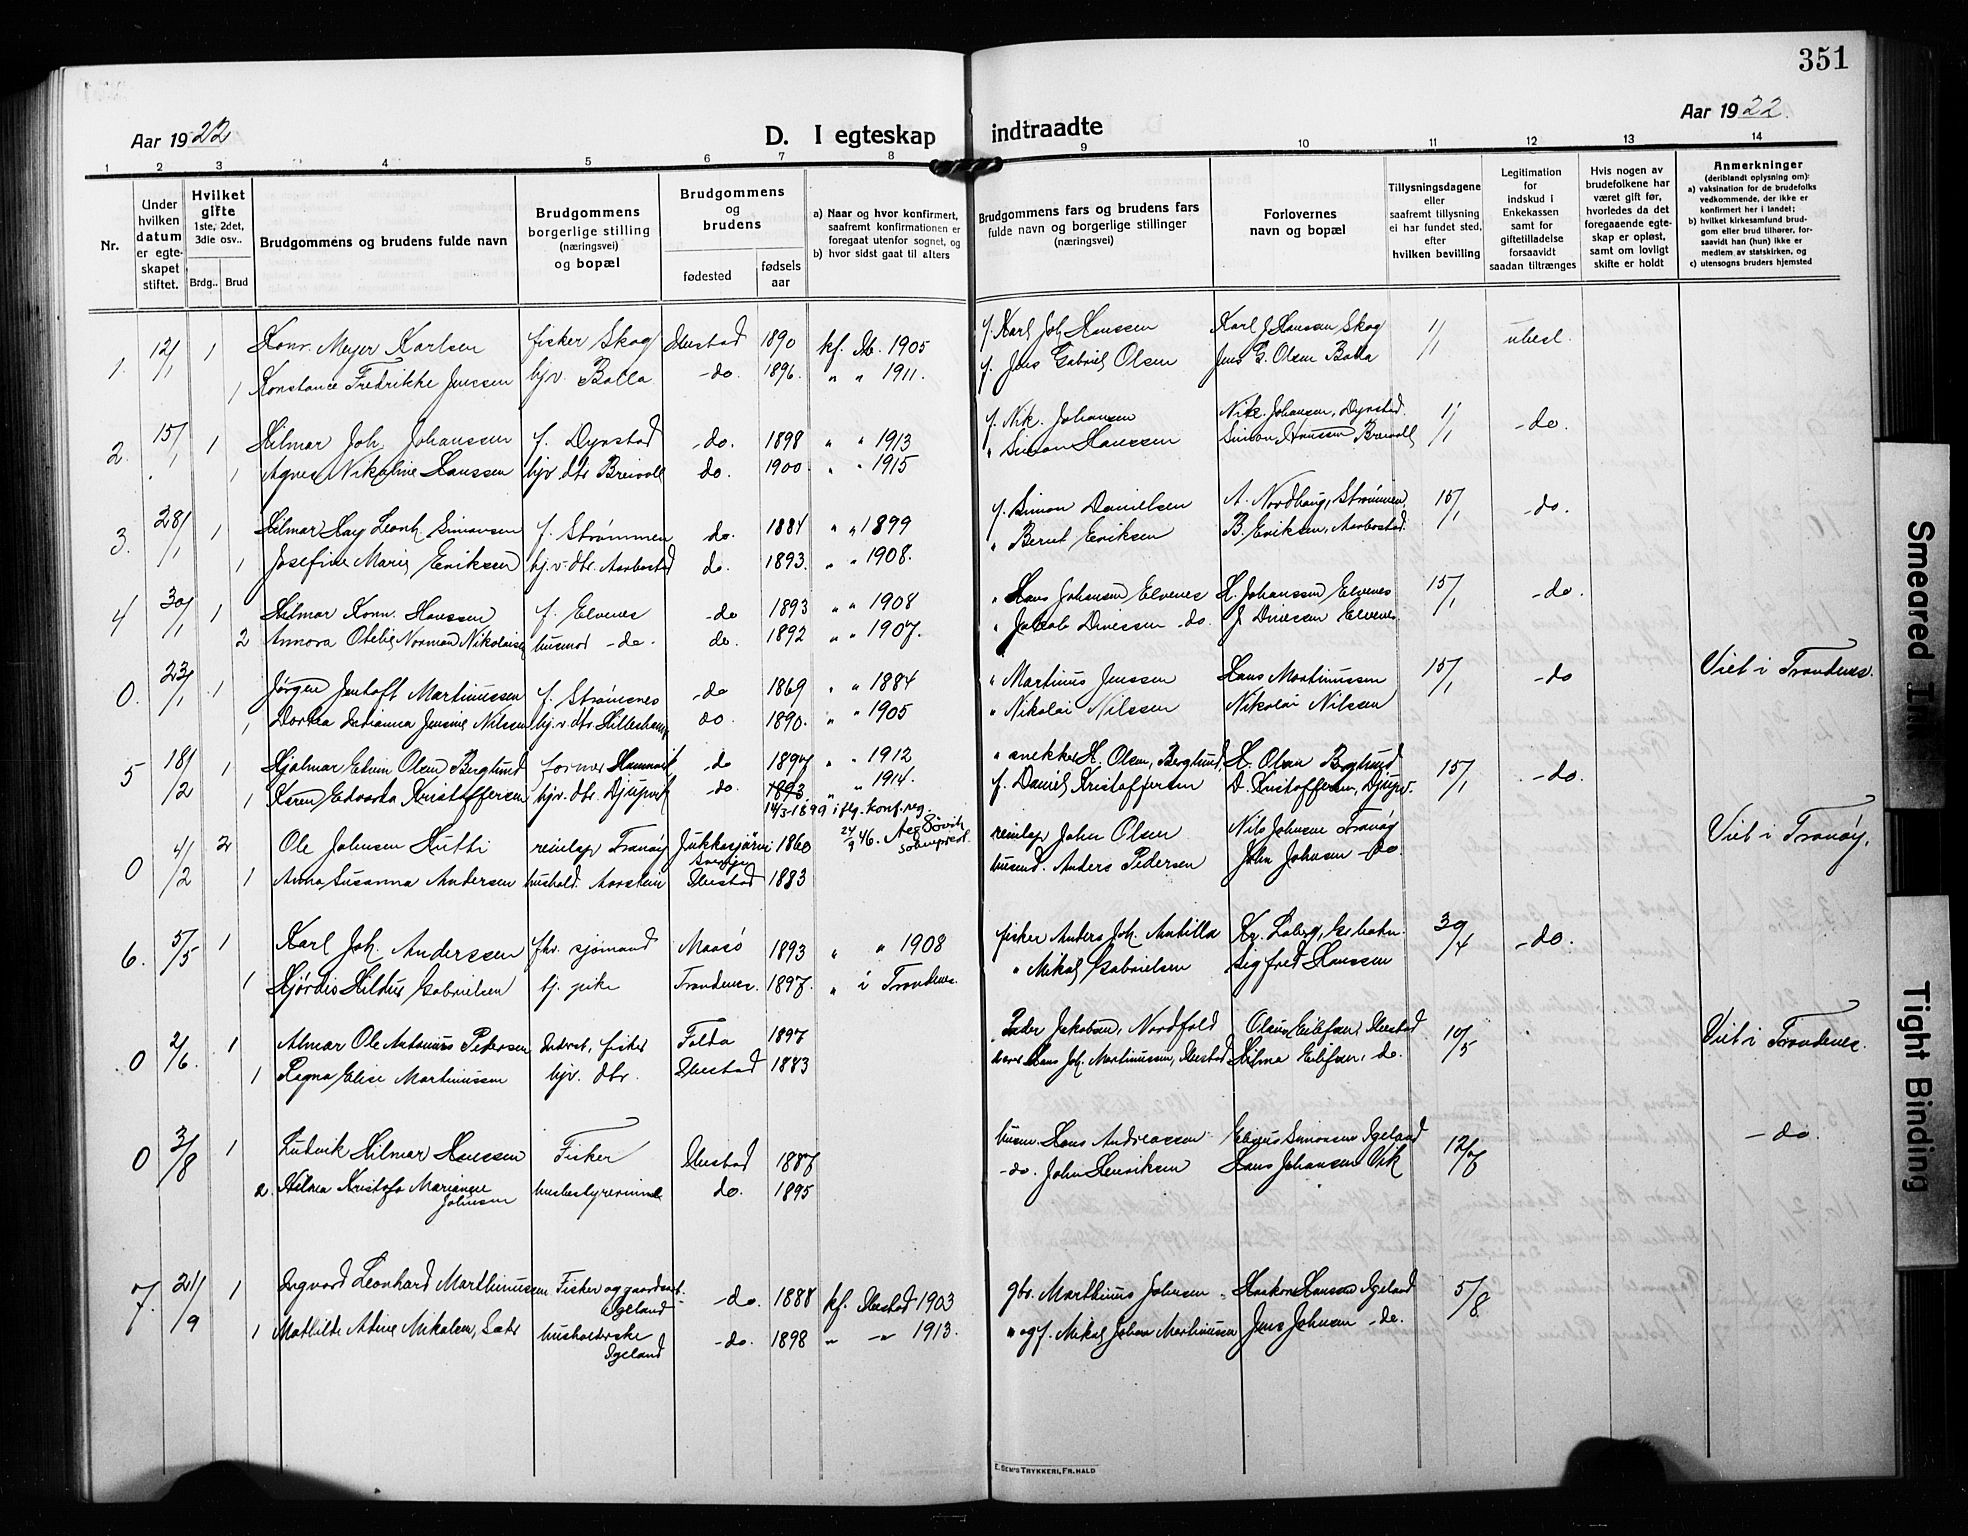 351
Aar 1922
D. I egteskap indtraadte
Aar 1922.
1 2 3 4 5 6 7 8 9 10 11 12 13 14
Nr.
Under hvilken datum er egteskapet stiftet.
Hvilket gifte 1ste, 2det, 3die osv..
Brdg.. Brud
Brudgommens og brudens fulde navn
Brudgommens borgerlige stilling (næringsvei) og bopæl
Brudgommens og brudens
fødested
fødselsaar
a) Naar og hvor konfirmert, saafremt konfirmationen er foregaat utenfor sognet, og
b) hvor sidst gaat til alters
Brudgommens fars og brudens fars fulde navn og borgerlige stillinger (næringsvei)
Forlovernes navn og bopæl
Tillysningsdagene eller saafremt tillysning ei har fundet sted, efter hvilken bevilling
Legitimation for indskud i Enkekassen samt for giftetilladelse forsaavidt saadan tiltrænges
Hvis nogen av brudefolkene har været gift før, hvorledes da det foregaaende egteskap er opløst, samt om lovligt skifte er holdt
Anmerkninger
(deriblandt oplysning om):
a) vaksination for de brudefolks vedkommende, der ikke er konfirmert her i landet;
b) hvilket kirkesamfund brudgom eller brud tilhører, forsaavidt han (hun) ikke er medlem av statskirken, og
c) utensogns bruders hjemsted
1. 12/1 1 Konr. Meyer Karlsen fisker Skog Ibestad 1890 kf. Ib. 1905 f. Karl Joh Hanssen Karl J Hanssen Skog 1/1 ubest.
1 Konstance Fredrikke Jenssen hjv. Bolla -do. 1896. " " 1911. f. Jens Gabriel Olsen Jens G. Olsen Bolla
2. 15/1 1 Hilmar Joh Johanssen f. Dyrstad -do. 1898 " " 1913 f. Nik. Johansen Nik. Johansen, Dyrstad. 1/1 -do.
1 Agnes Nikoline Hanssen hjv dtr Breivoll do. 1900 " " 1915 " Simon Hanssen Simon Hanssen Breivoll
3. 28/1 1 Hilmar Hay Leonh Simonsen f. Strømmen do. 1884 " " 1899 f. Simon Danielsen A. Nordhaug, Strømmen, 15/1 -do.
1 Josefine Marie Eriksen hj.v. dtr. Aarbostad do. 1893. " " 1908. " Bernt Eriksen B. Eriksen, Aarbostad.
4 30/1 1 Hilmar Konr. Hanssen f. Elvenes -do 1893 " " 1908 " Hans Johansen Elvenes H. Johanssen Elvenes 15/1 -do.
2 Annora Otelie Normad Nikolaisen husmod -do. do. 1892 " " 1907. " Jakob Dinessen -do. J Dinessen Elvenes.
0. 23/1 1 Jørgen Jentoft Martinussen f. Strømsnes -do 1869 " " 1884 " Martinus Jenssen Hans Martinussen 15/1 -do Viet i Trondenes.
1 Dortea Jensine Nilsen hj.v. dtr. do. 1890. " " 1905 " Nikolai Nilssen Nikolai Nilsen
5 18/2 1 Hjalmar Edvin Olsen Berglund former Hamnvik -do 1897 " " 1912 " anekker H. Olsen, Berglund, H. Olsen Berglund 15/1 -do.
1 Karen Edvarda Kristoffersen hjv. dtr. Djupvik -do. 1893. " " 1914. f. Daniel Kristoffersen D. Kristoffersen, Djupv.
14/3-1899 iflg. konf.reg. 24/9 46.
0 4/2 2 Ole Johnsen Hutti reinlap Tranøy Jukkasjärvi 1860 reinlap John Olsen Nils Johnsen Tranøy Viet i Tranøy.
Sverige
1 Anna Susanna Andersen hushold. Aarstein Ibestad 1883 husmd. Anders Pedersen John Johnsen -do
6. 5/5 1 Karl Joh. Anderssen fhv. sjømand Maasø 1893 " " 1908 fisker Anders Joh. Antilla Kr. Loberg, 30/4 -do.
1 Hjørdis Hildur Gabrielsen hj. pike Trondenes. 1897. " i Trondenes. " Mikal Gabrielsen Sigfred Hanssen
0 2/6. 1 Almar Ole Antonius Pedersen fisker Folda 1897 Peder Jakobsen, Nordfold Eilifsen, Ibestad 10/5 Viet i Trondenes.
1 Ragna Elise Martinussen hjv. dtr. Ibestad 1883 Hans Joh. Martinussen, Ibestad Hilma Eilifsen, do.
0 3/8 1 Ludvik Hilmar Hanssen Fisker Ibestad 1887 husm. Hans Andreassen Elias Simonsen Igeland 12/7 -do.
2. Hilma Kristofa Marianne Johnsen husbestyrerinne do. 1895 -do. John Henriksen Hans Johansen Vik
7. 21/9 1 Ingvard Leonhard Marthinussen Fisker og gaardsarb. Igeland -do. 1888 kf. Ibestad 1903 gbr. Marthinus Johnsen Haakon Hansen Igeland 5/8
1 Mathilde Adine Mikalsen, Sætr husholderske Igeland -do. 1898 " -"- 1913. " og f. Mikal Johan Martinussen Jens Johnsen -do.
E. SEM'S TRYKKERI, FR.HALD
Smeared Ink
Tight Binding